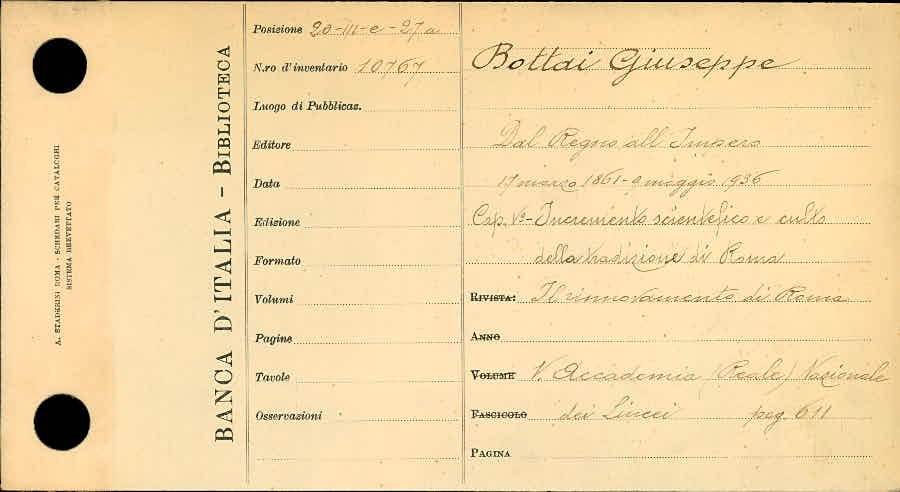 A. STADERINI ROMA - SCHEDARI PER CATALOGHI
SISTEMA BREVETTATO
BANCA D'ITALIA - BIBLIOTECA
Posizione 20-III-e-27a
N.ro d'inventario 10767
Luogo di Pubblicaz.
Editore
Data
Edizione
Formato
Volumi
Pagine
Tavole
Osservazioni
Bottai Giuseppe
Dal Regno all'Impero
17 marzo 1861-9 maggio 1936
Cap. Vº- Incremento scientifico e culto
della tradizione di Roma
RIVISTA: Il rinnovamento di Roma
ANNO
VOLUME V. Accademia (Reale) Nazionale
FASCICOLO dei Lincei pag. 611
PAGINA